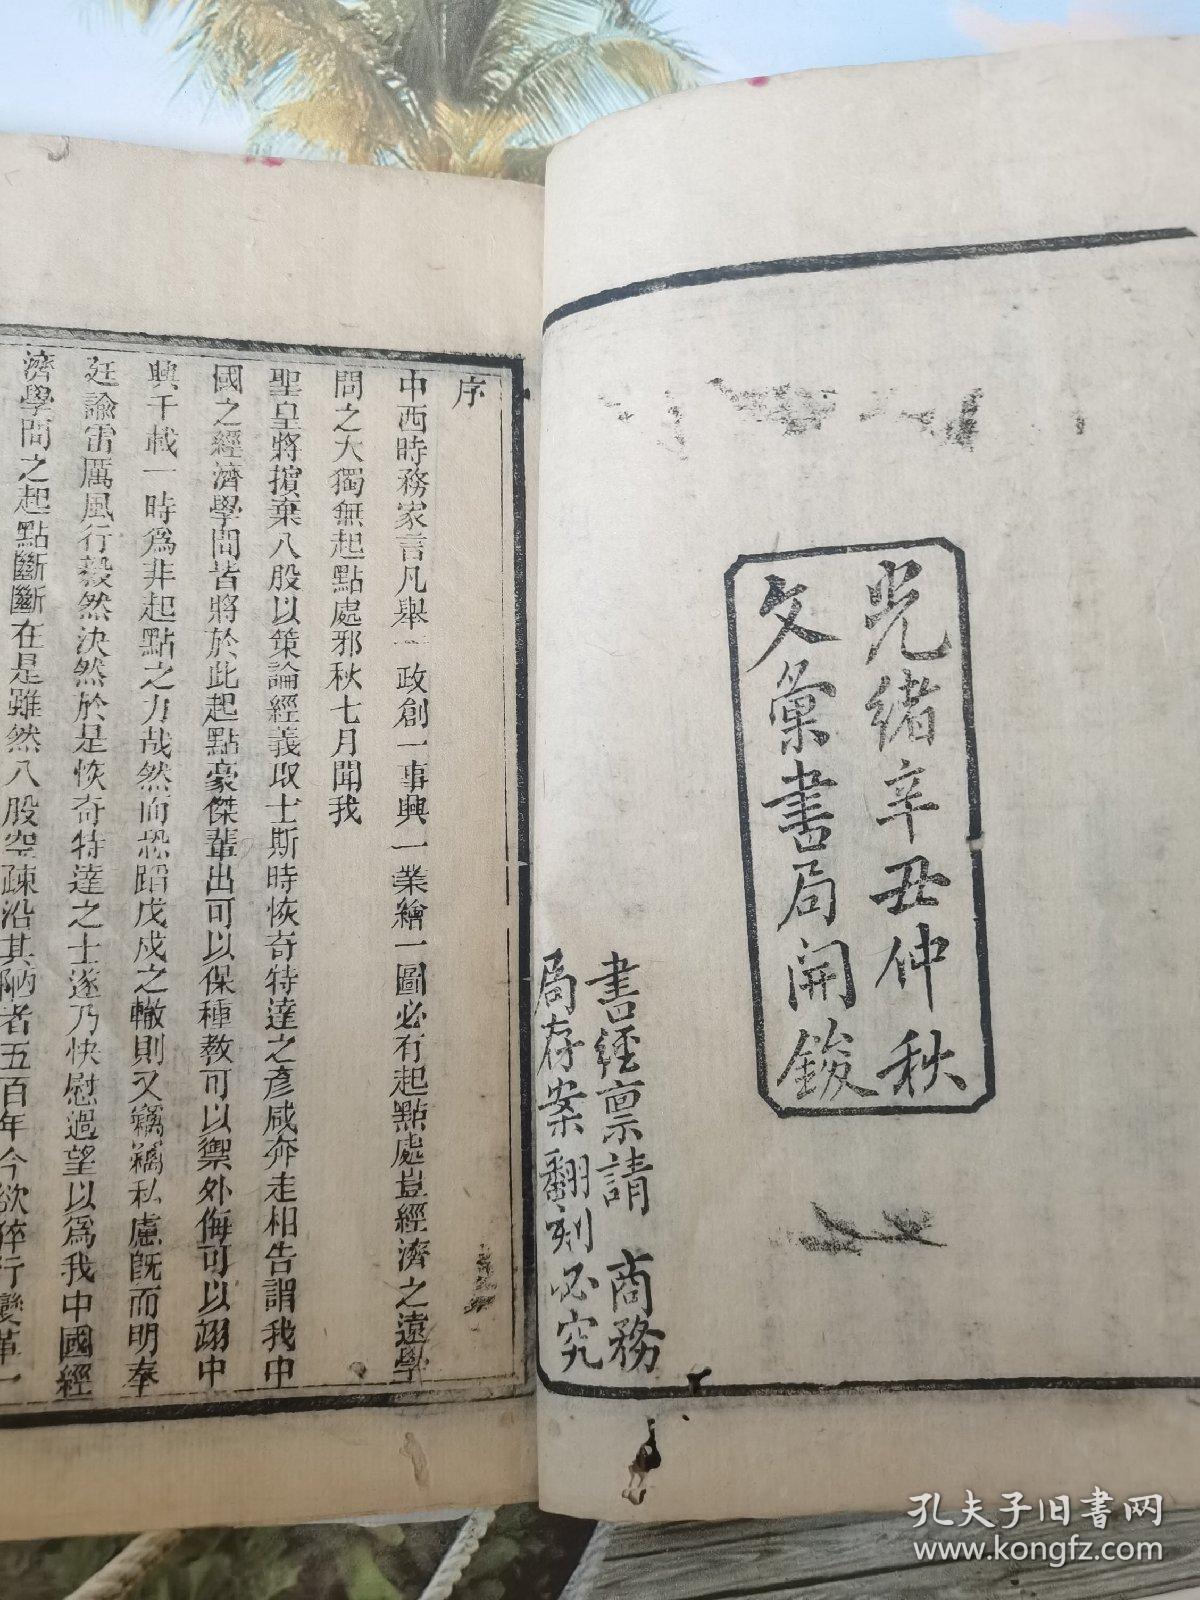 光緒辛丑仲秋
文彙書局開鋟
書經稟請　商務
局存案翻刻必究
序
中西時務家言凡舉一政創一事興一業繪一圖必有起點處豈經濟之遠學
問之大獨無起點處邪秋七月聞我
聖皇將擯棄八股以策論經義取士斯時恢奇特達之彥咸奔走相告謂我中
國之經濟學問皆將於此起點豪傑輩出可以保種教可以禦外侮可以翊中
興千載一時爲非起點之力哉然而恐蹈戊戌之轍則又竊竊私慮旣而明奉
廷諭雷厲風行毅然決然於是恢奇特達之士遂乃快慰過望以爲我中國經
濟學問之起點斷斷在是雖然八股空疎沿其陋者五百年今欲猝行變革一
孔夫子旧书网
www.kongfz.com